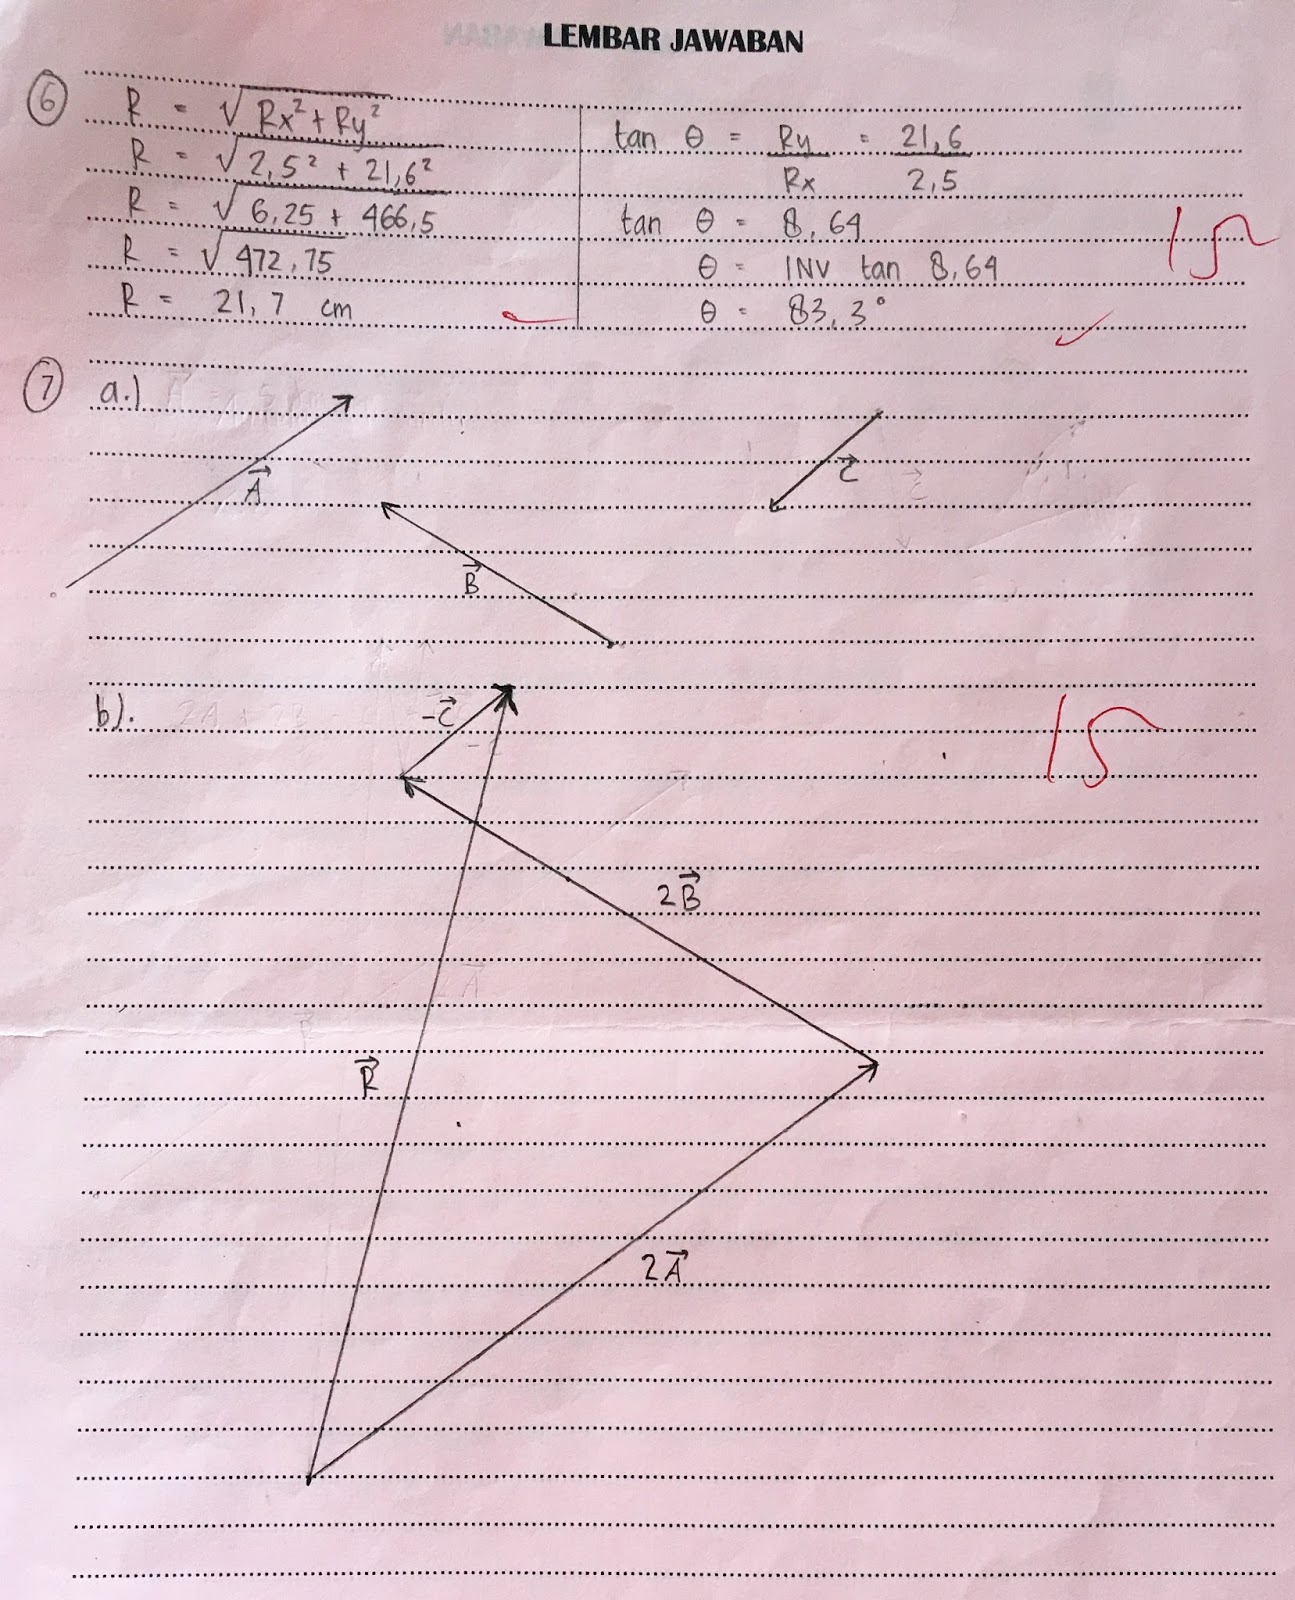 LEMBAR JAWABAN
6
R = √Rx² + Ry²
R = √2,5² + 21,6²
R = √6,25 + 466,5
R = √472,75
R = 21,7 cm
tan θ = Ry/Rx = 21,6/2,5
tan θ = 8,64
θ = INV tan 8,64
θ = 83,3°
15
7 a.)
A⃗
B⃗
C⃗
b).
-C⃗
15
2B⃗
R⃗
2A⃗